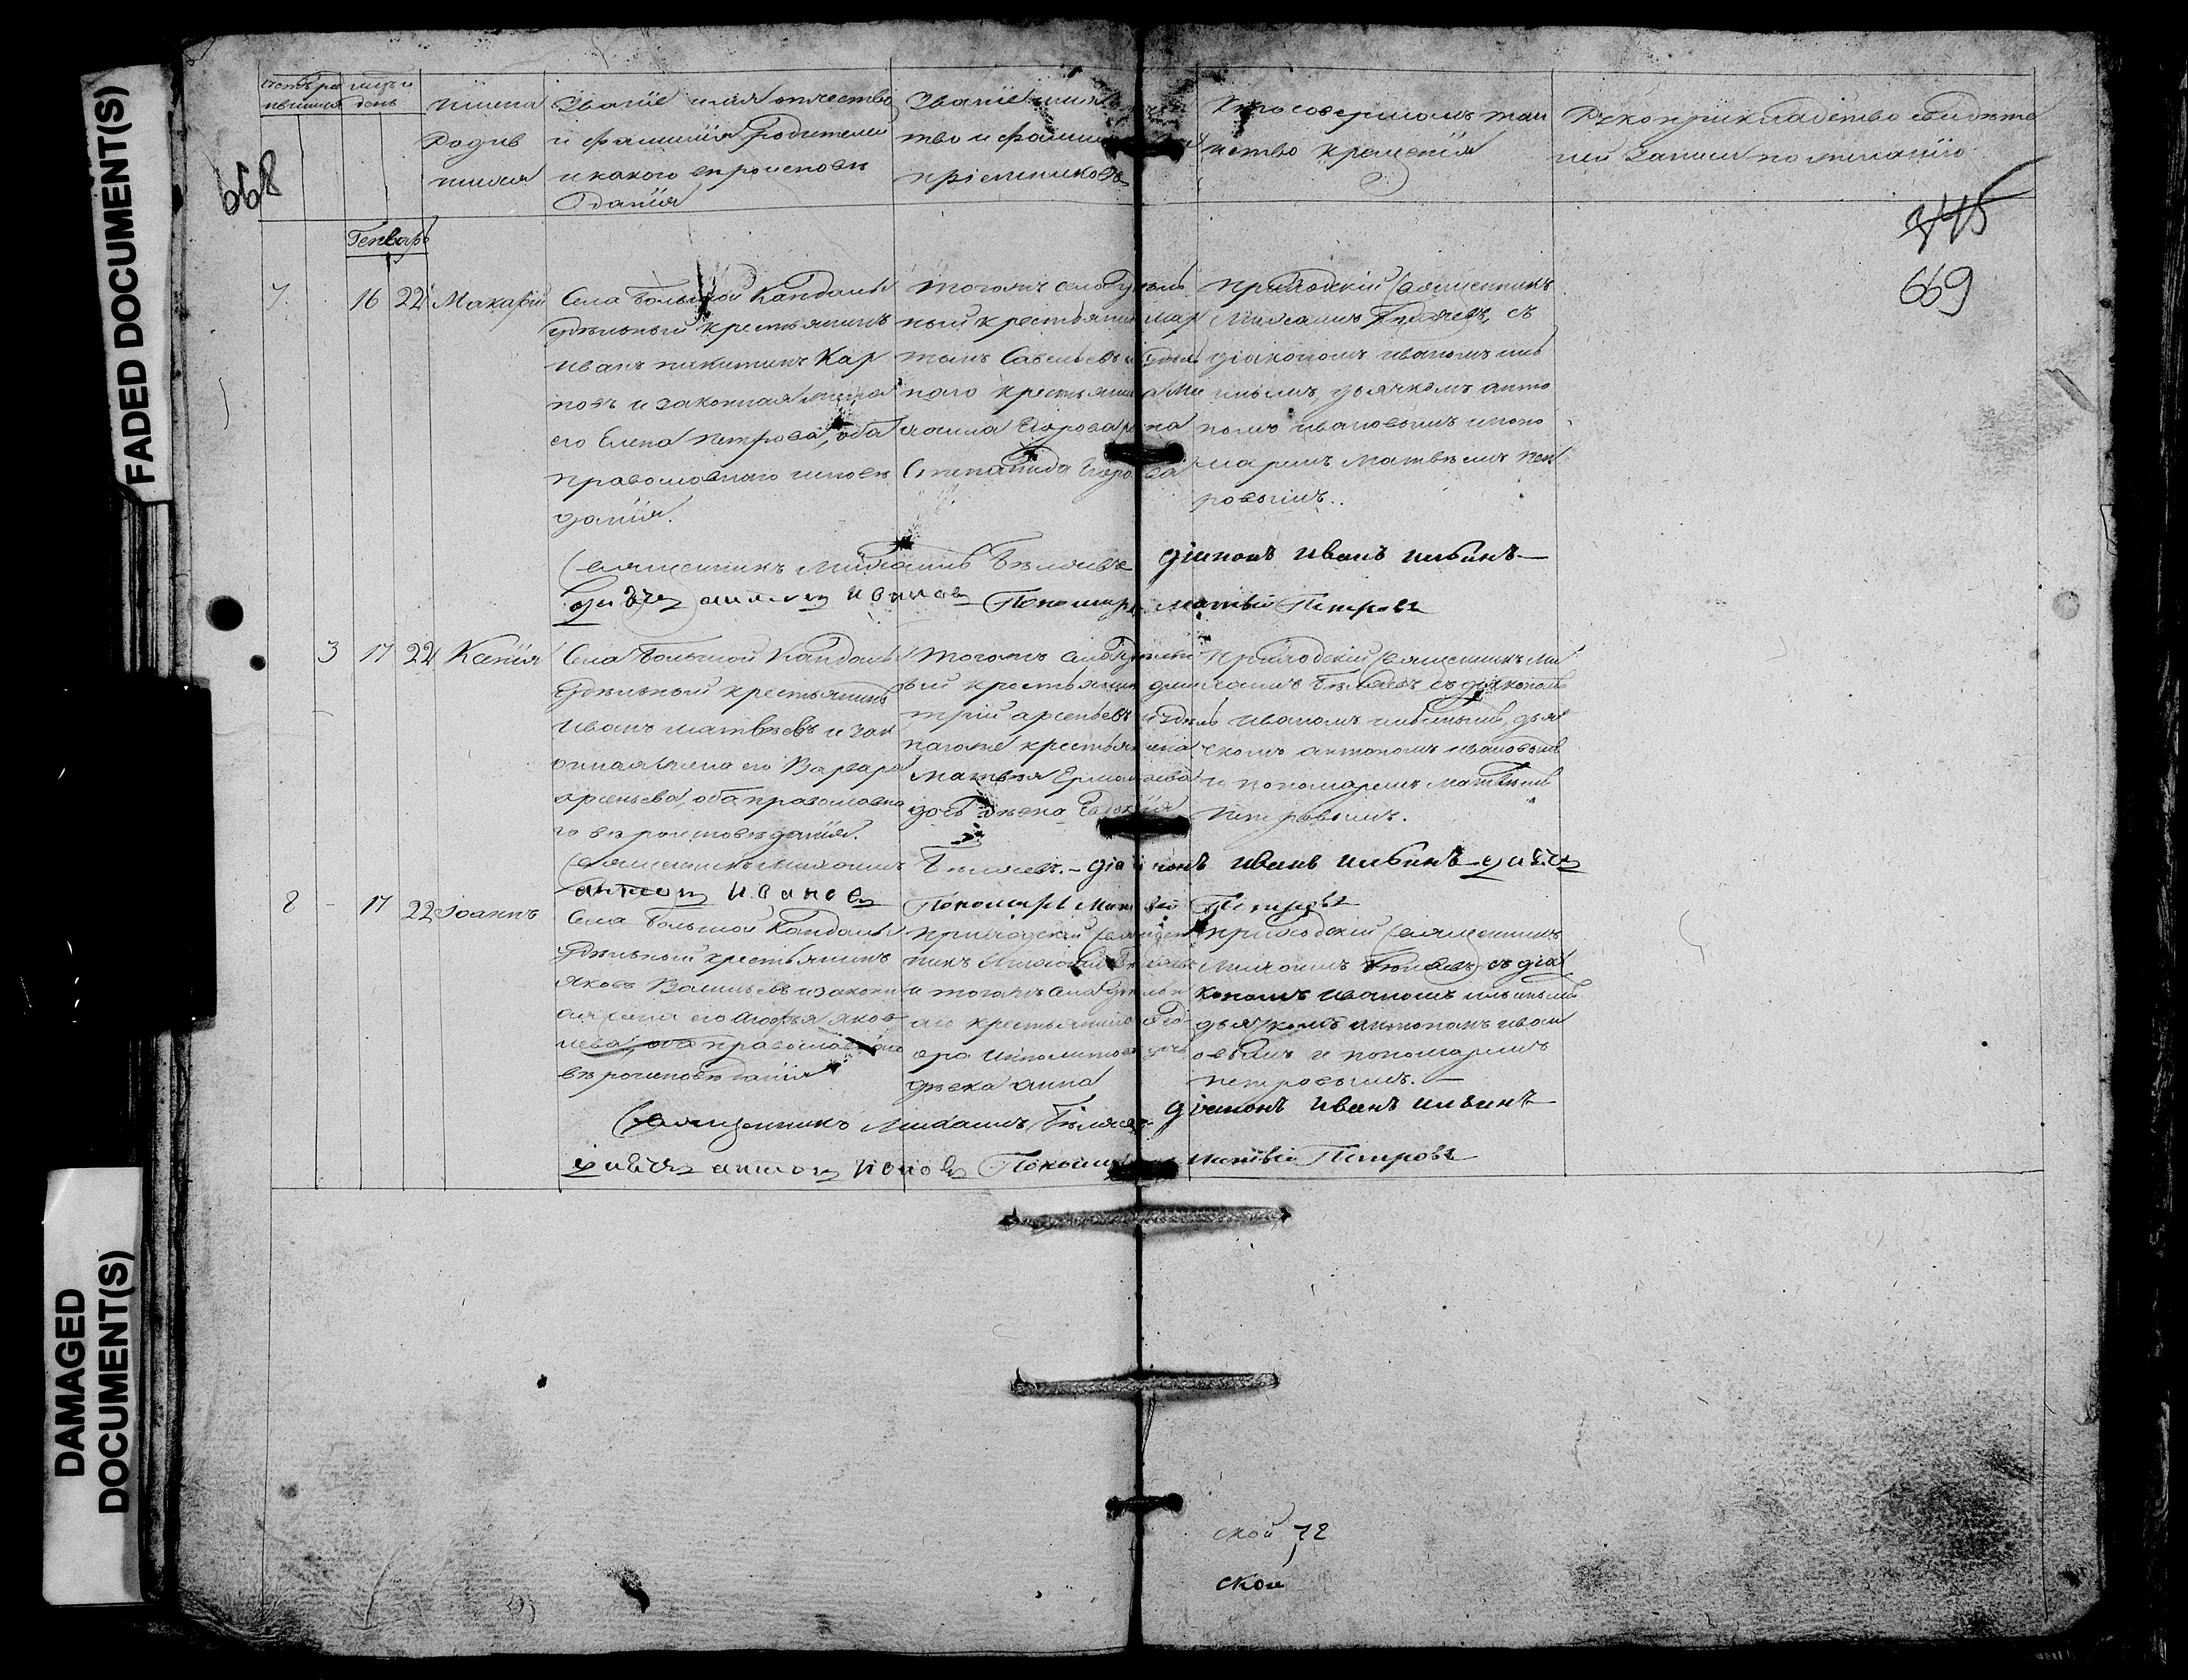 FADED DOCUMENT(S)
DAMAGED
DOCUMENT(S)
668
имена
родив
шихся
Званіе имя отчество
и фамилія родителей
и какого вѣроисповѣ
данія
Званіе имя
тво и фамилі
пріемниковъ
Кто совершалъ таи
нство крещенія
Рукоприкладство свидѣте
лей записи по желанію
345
669
Генварь
7
16
22
Макарій
Села Большой Кандалы
удѣльный крестьянинъ
Иванъ никитинъ Кар
повъ и законная жена
его Елена петрова, оба
православнаго исповѣ
данія.
тогожъ села удѣль
ный крестьянинъ мар
тынъ Савельевъ и удѣль
наго крестьянина Ми
хаила Егорова жена
Степанида Егорова
приходскій священникъ
Михаилъ Бѣляевъ, съ
діакономъ иваномъ иль
инымъ, дьячкомъ анто
номъ ивановымъ и поно
маремъ матвѣемъ пет
ровымъ.
Священникъ Михаилъ Бѣляевъ діаконъ иванъ ильинъ
Пономарь матвѣй Петровъ
3
17
22
Ксенія
Села Большой Кандалы
удѣльный крестьянинъ
Иванъ матвѣевъ и зак
онная жена его Варвара
арсеньева, оба православна
го вѣроисповѣданія.
тогожъ села удѣльн
ый крестьянинъ дми
трій арсеньевъ и удѣль
наго же крестьянина
матвѣя Ермолаева
дочь дѣвка Евдокія
приходскій священникъ Ми
хаилъ Бѣляевъ съ діакономъ
иваномъ ильинымъ, дья
чкомъ антономъ ивановымъ
и пономаремъ матвѣемъ
петровымъ.
Священникъ Михаилъ Бѣляевъ. - діаконъ иванъ ильинъ
антонъ Ивановъ Пономарь Матвѣй Петровъ
8
-
17
22
Іоаннъ
Села Большой Кандалы
удѣльный крестьянинъ
яковъ Васильевъ и законн
ая жена его агафья яков
лева, оба православнаго
вѣроисповѣданія
приходскій священ
никъ Михаилъ Бѣляевъ
и тогожъ села удѣльн
аго крестьянина
дочь
дѣвка анна
приходскій священникъ
Михаилъ Бѣляевъ съ діа
кономъ иваномъ ильинымъ
дьячкомъ антономъ иван
овымъ и пономаремъ
петровымъ.
Священникъ Михаилъ Бѣляевъ діаконъ иванъ ильинъ
антонъ Пономарь Матвѣй Петровъ
ской 72
ской